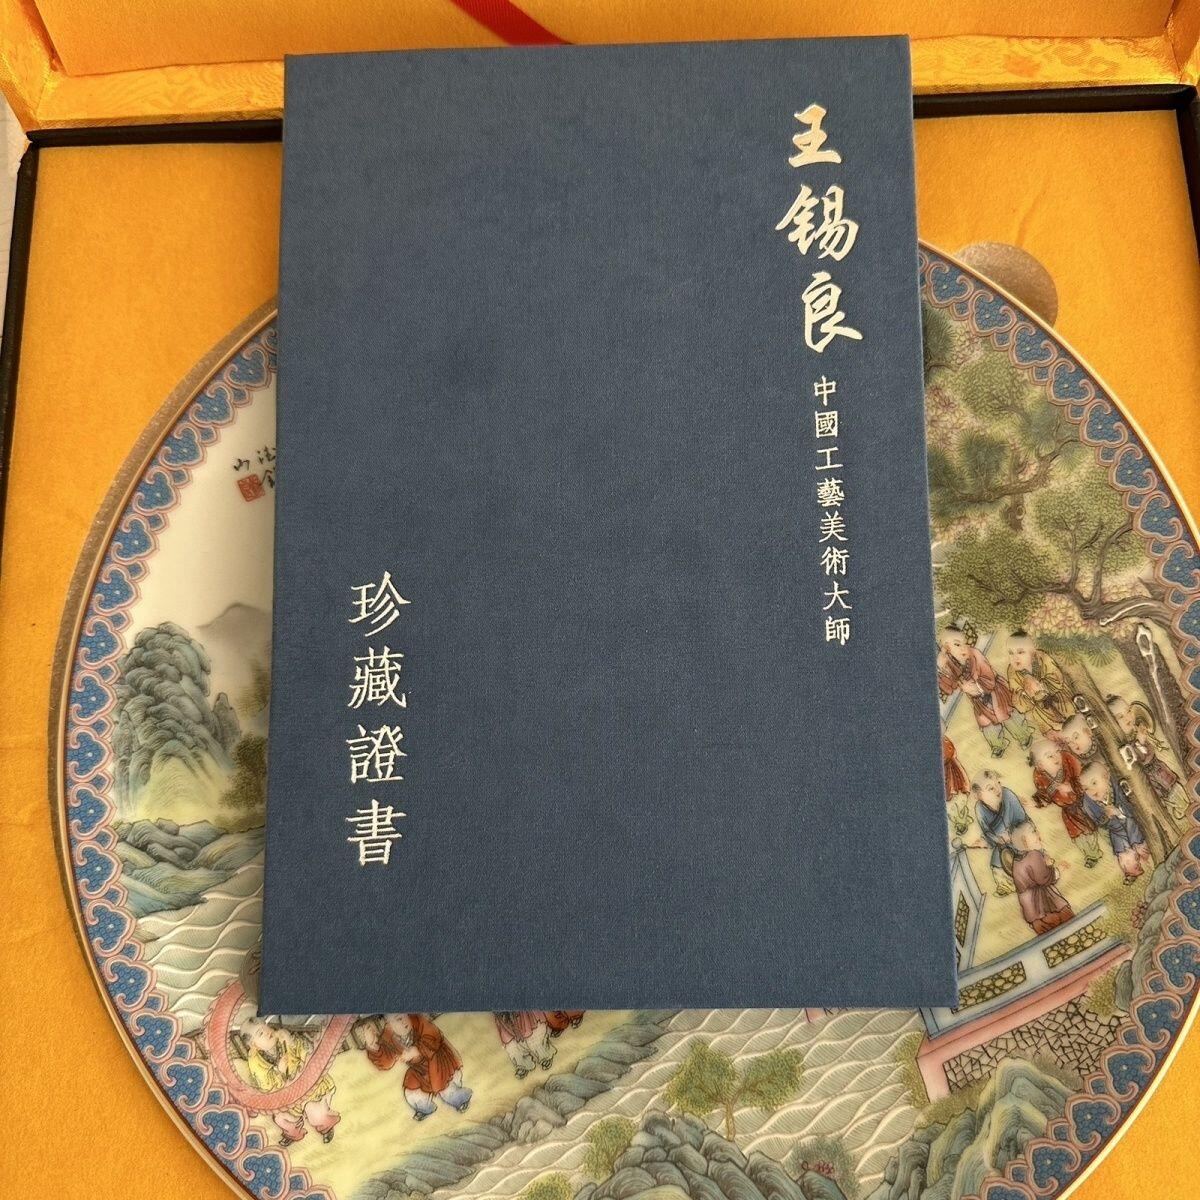 王錫良
中國工藝美術大師
珍藏證書